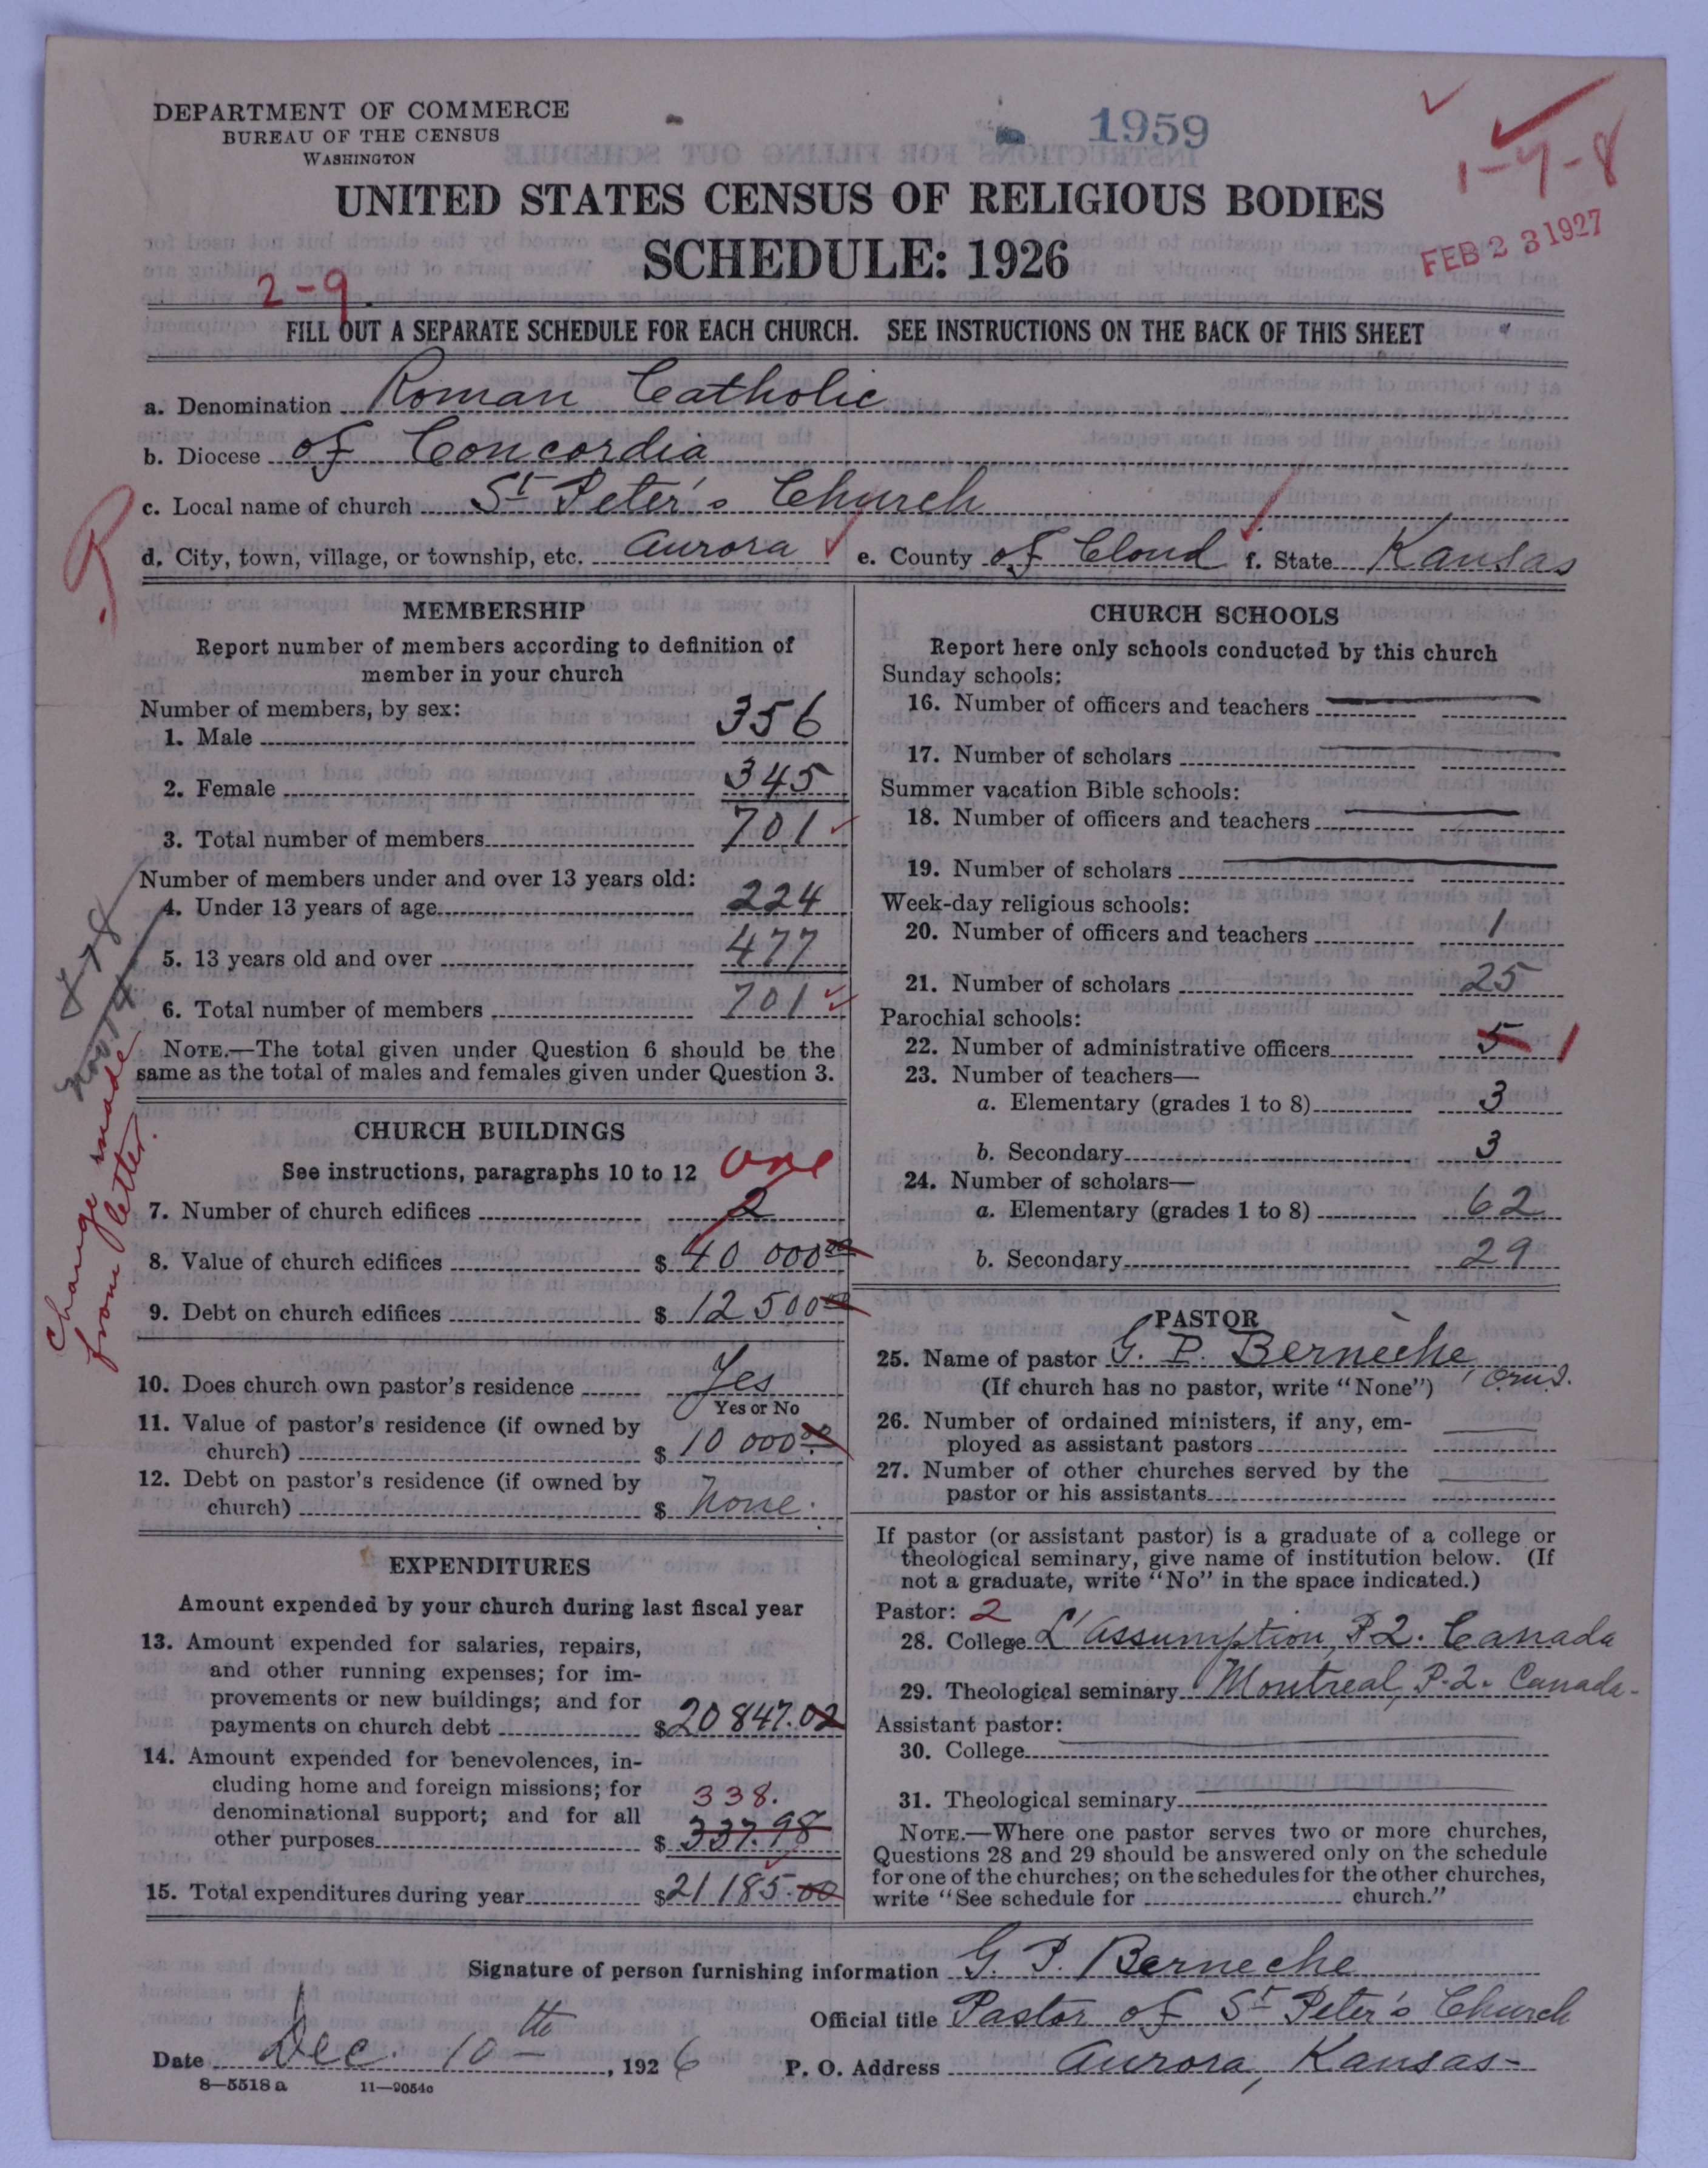 DEPARTMENT OF COMMERCE
BUREAU OF THE CENSUS
WASHINGTON
1959
1-7-8
UNITED STATES CENSUS OF RELIGIOUS BODIES
SCHEDULE: 1926
FEB 23 1927
2-9
FILL OUT A SEPARATE SCHEDULE FOR EACH CHURCH. SEE INSTRUCTIONS ON THE BACK OF THIS SHEET
a. Denomination Roman Catholic
b. Diocese of Concordia
c. Local name of church St Peter's Church
d. City, town, village, or township, etc. Aurora e. County of Cloud f. State Kansas
R
MEMBERSHIP
Report number of members according to definition of
member in your church
Number of members, by sex:
1. Male 356
2. Female 345
3. Total number of members 701
Number of members under and over 13 years old:
4. Under 13 years of age 224
5. 13 years old and over 477
6. Total number of members 701
NOTE.—The total given under Question 6 should be the
same as the total of males and females given under Question 3.
Change made
from letter.
CHURCH BUILDINGS
See instructions, paragraphs 10 to 12
one
7. Number of church edifices 2
8. Value of church edifices $ 40 000 00
9. Debt on church edifices $ 12 500 00
10. Does church own pastor's residence Yes
Yes or No
11. Value of pastor's residence (if owned by
church) $ 10 000 00
12. Debt on pastor's residence (if owned by
church) $ None.
EXPENDITURES
Amount expended by your church during last fiscal year
13. Amount expended for salaries, repairs,
and other running expenses; for im-
provements or new buildings; and for
payments on church debt $ 20 847.02
14. Amount expended for benevolences, in-
cluding home and foreign missions; for
denominational support; and for all
338.
other purposes $ 337.98
15. Total expenditures during year $ 21 185.00
CHURCH SCHOOLS
Report here only schools conducted by this church
Sunday schools:
16. Number of officers and teachers
17. Number of scholars
Summer vacation Bible schools:
18. Number of officers and teachers
19. Number of scholars
Week-day religious schools:
20. Number of officers and teachers 1
21. Number of scholars 25
Parochial schools:
22. Number of administrative officers 5 1
23. Number of teachers—
a. Elementary (grades 1 to 8) 3
b. Secondary 3
24. Number of scholars—
a. Elementary (grades 1 to 8) 62
b. Secondary 29
PASTOR
25. Name of pastor G. P. Berneche
(If church has no pastor, write "None")
26. Number of ordained ministers, if any, em-
ployed as assistant pastors
27. Number of other churches served by the
pastor or his assistants
If pastor (or assistant pastor) is a graduate of a college or
theological seminary, give name of institution below. (If
not a graduate, write "No" in the space indicated.)
Pastor: 2
28. College L'Assumption, P.Q. Canada
29. Theological seminary Montreal, P.Q. Canada
Assistant pastor:
30. College
31. Theological seminary
NOTE.—Where one pastor serves two or more churches,
Questions 28 and 29 should be answered only on the schedule
for one of the churches; on the schedules for the other churches,
write "See schedule for church."
Signature of person furnishing information G. P. Berneche
Official title Pastor of St Peter's Church
Date Dec. 10th, 1926 P. O. Address Aurora, Kansas
8—5518 a 11—9054c